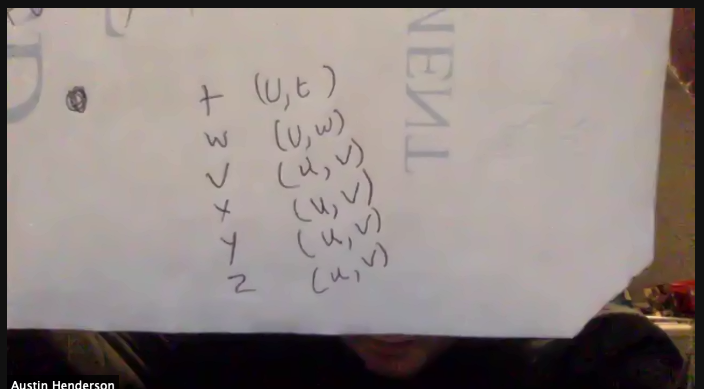 t (U, t)
w (U, w)
v (u, v)
x (u, v)
y (u, v)
z (u, v)
MENT
Austin Henderson